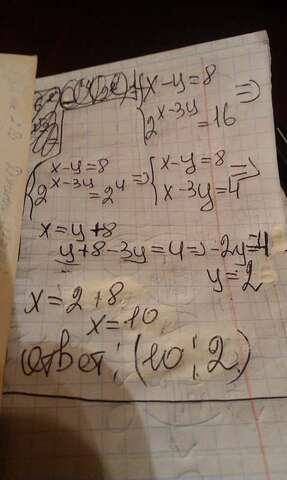 {x-y=8 =>
2^{x-3y}=16
{x-y=8
2^{x-3y}=2^4 => {x-y=8
x-3y=4 =>
x=y+8
y+8-3y=4 => -2y=-4
y=2
x=2+8
x=10
Ответ: (10; 2)